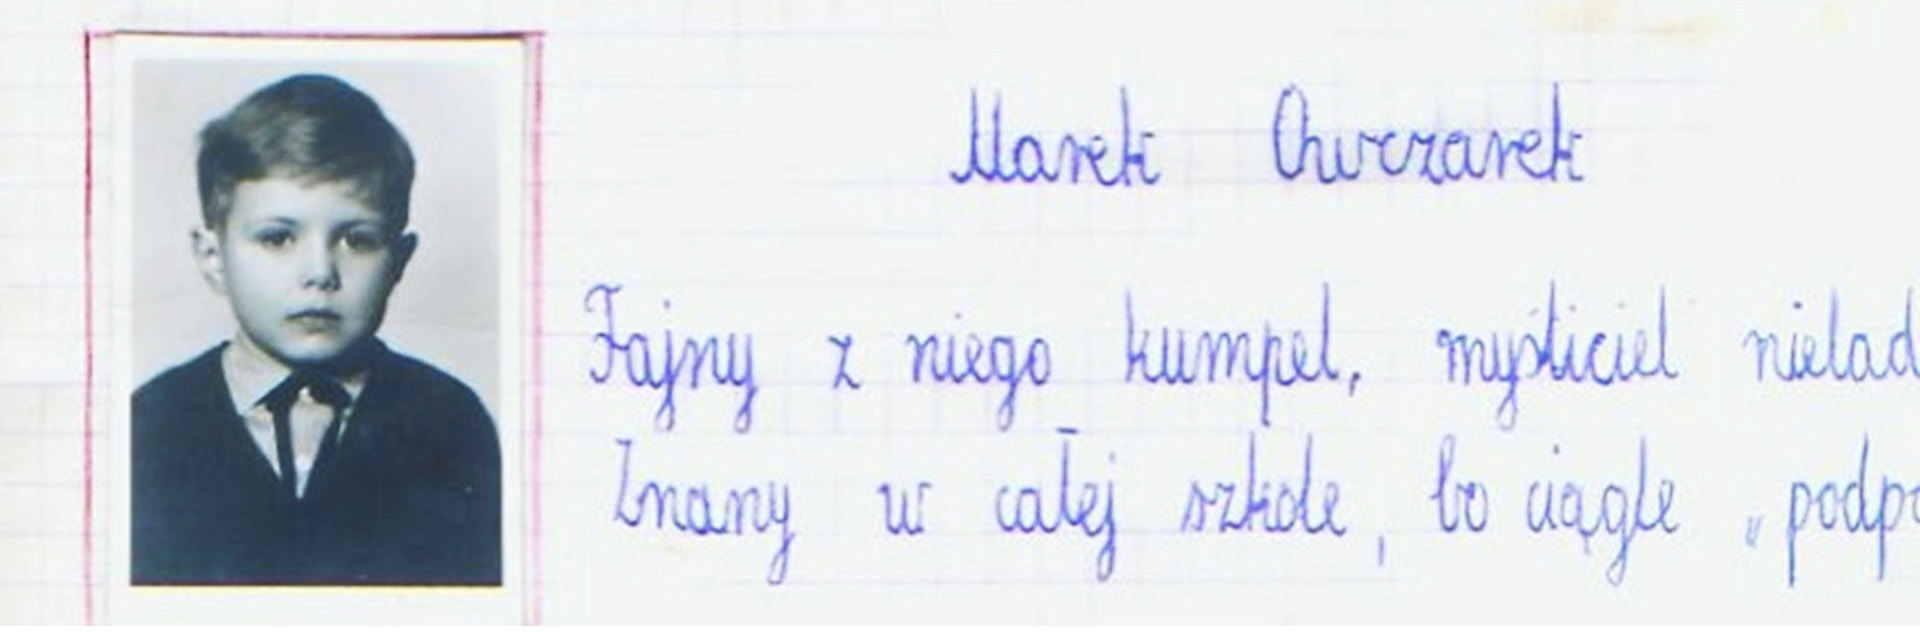 Marek Owczarek
Fajny z niego kumpel, myśliciel nielad
Znany w całej szkole, bo ciągle „podpo